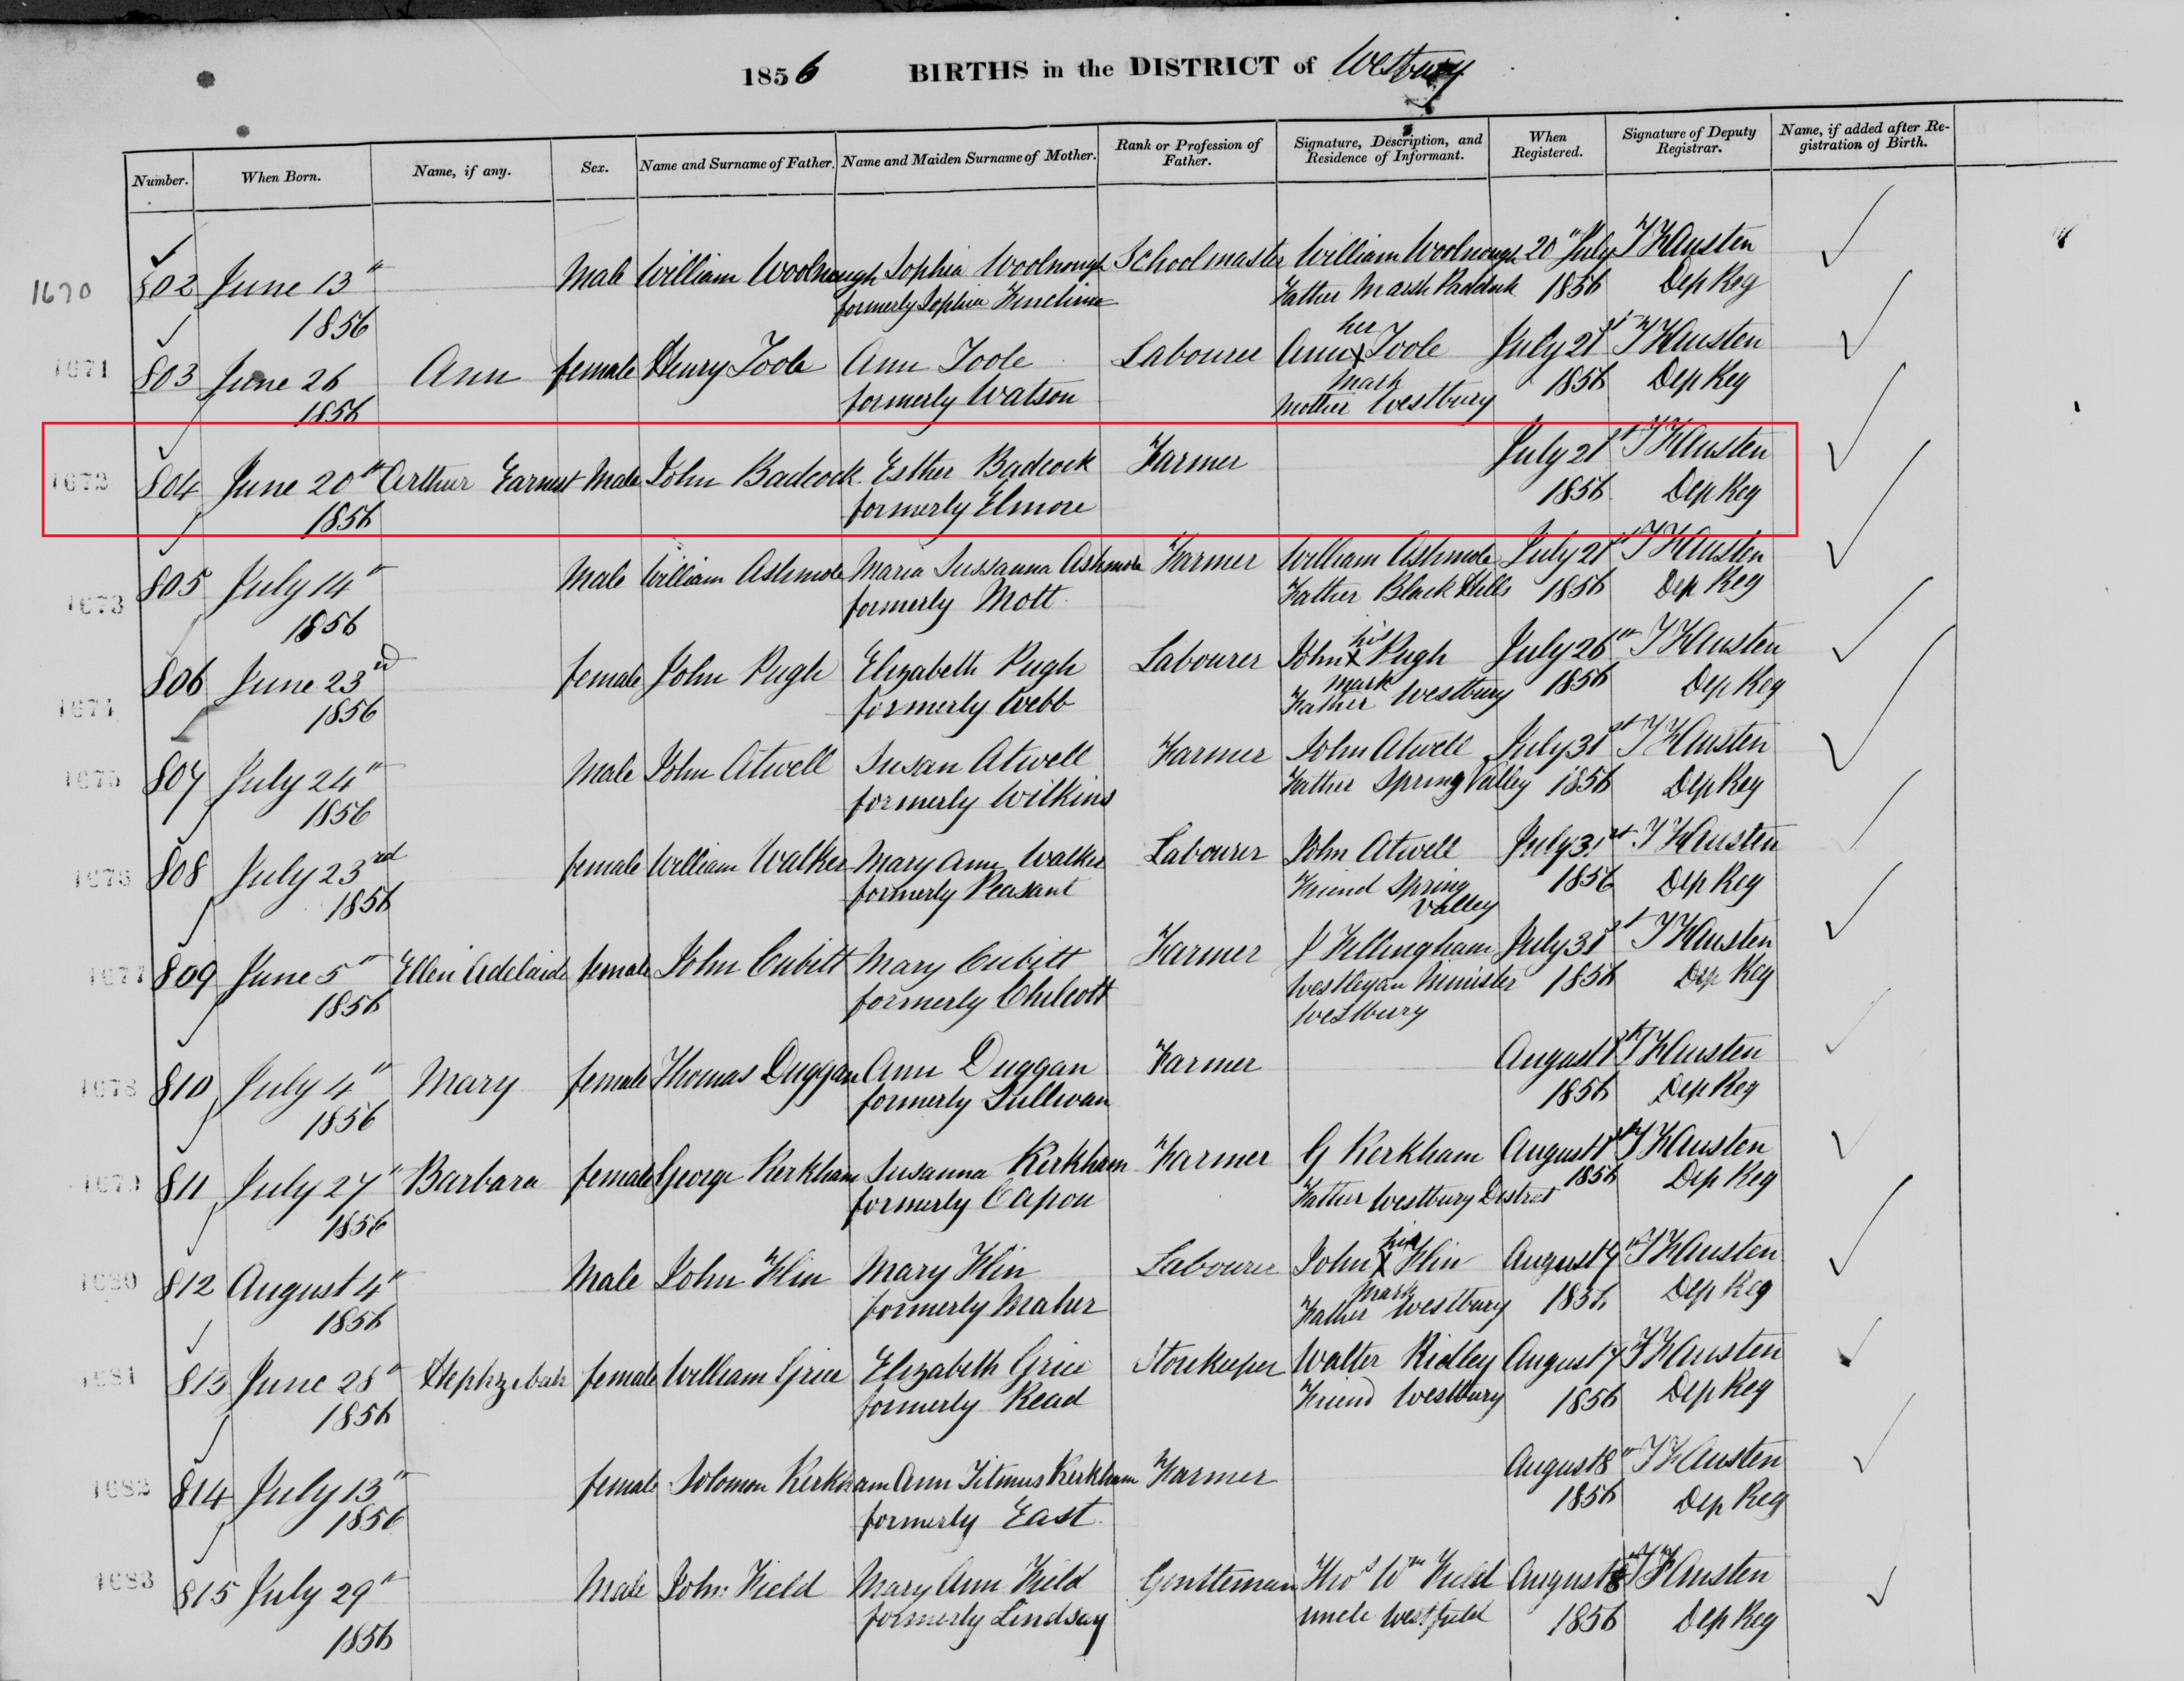 1856 BIRTHS in the DISTRICT of Westbury
Number. When Born. Name, if any. Sex. Name and Surname of Father. Name and Maiden Surname of Mother. Rank or Profession of Father. Signature, Description, and Residence of Informant. When Registered. Signature of Deputy Registrar. Name, if added after Registration of Birth.
1670 802 June 13th Male William Woolnough Sophia Woolnough Schoolmaster William Woolnough 20th July T K Austen
1856 formerly Sophia Father Marsh Paddock 1856 Dep Reg
her
1671 803 June 26 Ann female Henry Toole Ann Toole Labourer Ann X Toole July 21st T K Austen
1856 formerly Watson mark 1856 Dep Reg
Mother Westbury
1672 804 June 20th Arthur Earnest Male John Badcock Esther Badcock Farmer July 21st T K Austen
1856 formerly Elmore 1856 Dep Reg
1673 805 July 14th Male William Ashmole Maria Sussanna Ashmole Farmer William Ashmole July 21st T K Austen
1856 formerly Mott Father Black Hills 1856 Dep Reg
his
1674 806 June 23rd female John Pugh Elizabeth Pugh Labourer John X Pugh July 26th T K Austen
1856 formerly Webb mark 1856 Dep Reg
Father Westbury
1675 807 July 24th Male John Atwell Susan Atwell Farmer John Atwell July 31st T K Austen
1856 formerly Wilkins Father Spring Valley 1856 Dep Reg
1676 808 July 23rd female William Walker Mary Ann Walker Labourer John Atwell July 31st T K Austen
1856 formerly Peasant Friend Spring 1856 Dep Reg
Valley
1677 809 June 5th Ellen Adelaide female John Cubitt Mary Cubitt Farmer J Fillingham July 31st T K Austen
1856 formerly Chilcott Westleyan Minister 1856 Dep Reg
Westbury
1678 810 July 4th Mary female Thomas Duggan Ann Duggan Farmer August 1st T K Austen
1856 formerly Sullivan 1856 Dep Reg
1679 811 July 27th Barbara female George Kerkham Susanna Kerkham Farmer G Kerkham August 1st T K Austen
1856 formerly Capon Father Westbury District 1856 Dep Reg
his
1680 812 August 4th Male John Flin Mary Flin Labourer John X Flin August 4th T K Austen
1856 formerly Maher mark 1856 Dep Reg
Father Westbury
1681 813 June 28th Hephzibah female William Grice Elizabeth Grice Storekeeper Walter Ridley August 7 T K Austen
1856 formerly Read Friend Westbury 1856 Dep Reg
1682 814 July 13th female Solomon Kerkham Ann Titmus Kerkham Farmer August 8th T K Austen
1856 formerly East 1856 Dep Reg
1683 815 July 29th Male John Field Mary Ann Field Gentleman Thos Wm Field August 8th T K Austen
1856 formerly Lindsay Uncle Westfield 1856 Dep Reg